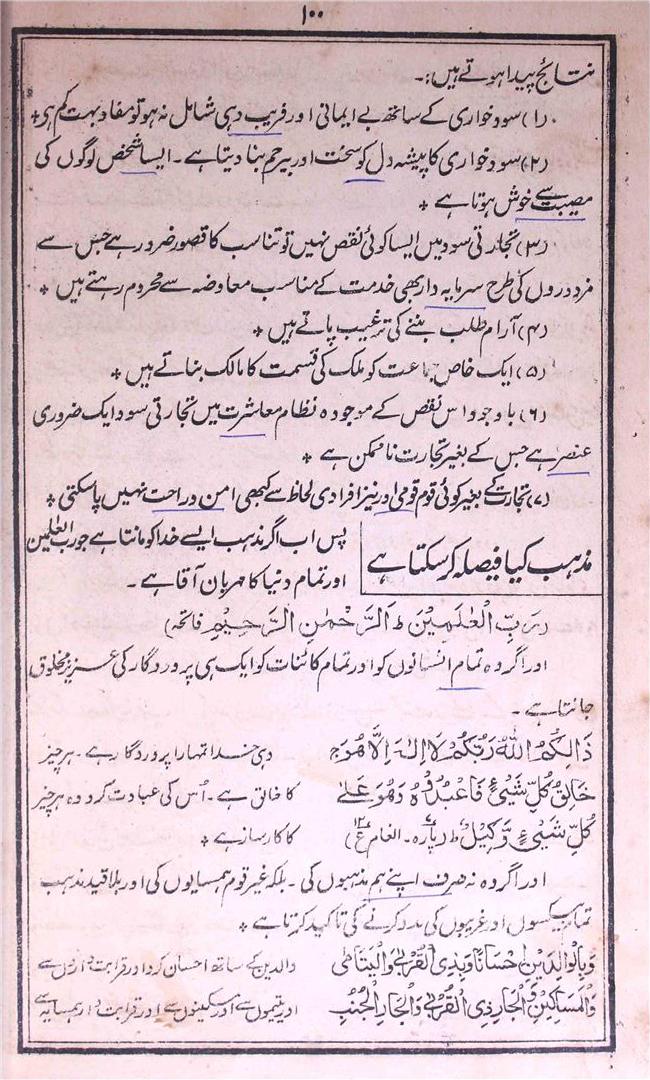 ۱۰۰
نتائج پیدا ہوتے ہیں:۔
(۱) سود خواری کے ساتھ بے ایمانی اور فریب دہی شامل نہ ہو تو مفاد بہت کم ہی *
(۲) سود خواری کا پیشہ دل کو سخت اور بیرحم بنا دیتا ہے۔ ایسا شخص لوگوں کی
مصیبت سے خوش ہوتا ہے *
(۳) تجارتی سود میں ایسا کوئی نقص نہیں تو تناسب کا قصور ضرور ہے جس سے
مزدوروں کی طرح سرمایہ دار بھی خدمت کے مناسب معاوضہ سے محروم رہتے ہیں *
(۴) آرام طلب بننے کی ترغیب پاتے ہیں *
(۵) ایک خاص جماعت کو ملک کی قسمت کا مالک بناتے ہیں *
(۶) باوجود اس نقص کے موجودہ نظام معاشرت میں تجارتی سود ایک ضروری
عنصر ہے جس کے بغیر تجارت ناممکن ہے *
(۷) تجارت کے بغیر کوئی قوم قومی اور نیز افرادی لحاظ سے کبھی امن و راحت نہیں پا سکتی *
مذہب کیا فیصلہ کر سکتا ہے
پس اب اگر مذہب ایسے خدا کو مانتا ہے جو رب العٰلمین
اور تمام دنیا کا مہربان آقا ہے۔
(رَبِّ الْعٰلَمِیْنَ ط اَلرَّحْمٰنِ الرَّحِیْمِ فاتحہ)
اور اگر وہ تمام انسانوں کو اور تمام کائنات کو ایک ہی پروردگار کی عزیز مخلوق
جانتا ہے۔
ذَالِکُمُ اللّٰہُ رَبُّکُمْ لَا اِلٰہَ اِلَّا ھُوَ ج
خَالِقُ کُلِّ شَیْئٍ فَاعْبُدُوْہُ وَھُوَ عَلٰی
کُلِّ شَیْئٍ وَّکِیْلٌ ط (پارہ ۷۔ انعام ع ۱۲)
وہی خدا تمہارا پروردگار ہے۔ ہر چیز
کا خالق ہے۔ اُس کی عبادت کرو وہ ہر چیز
کا کارساز ہے *
اور اگر وہ نہ صرف اپنے ہم مذہبوں کی۔ بلکہ غیر قوم ہمسایوں کی اور بلا قید مذہب
تمام بیکسوں اور غریبوں کی مدد کرنے کی تاکید کرتا ہے *
وَبِالْوَالِدَیْنِ اِحْسَانًا وَّبِذِی الْقُرْبٰی وَالْیَتَامٰی
وَالْمَسَاکِیْنِ وَالْجَارِ ذِی الْقُرْبٰی وَالْجَارِ الْجُنُبِ
والدین کے ساتھ احسان کرو اور قرابت داروں سے
اور یتیموں سے اور مسکینوں سے اور قرابت دار ہمسایہ سے